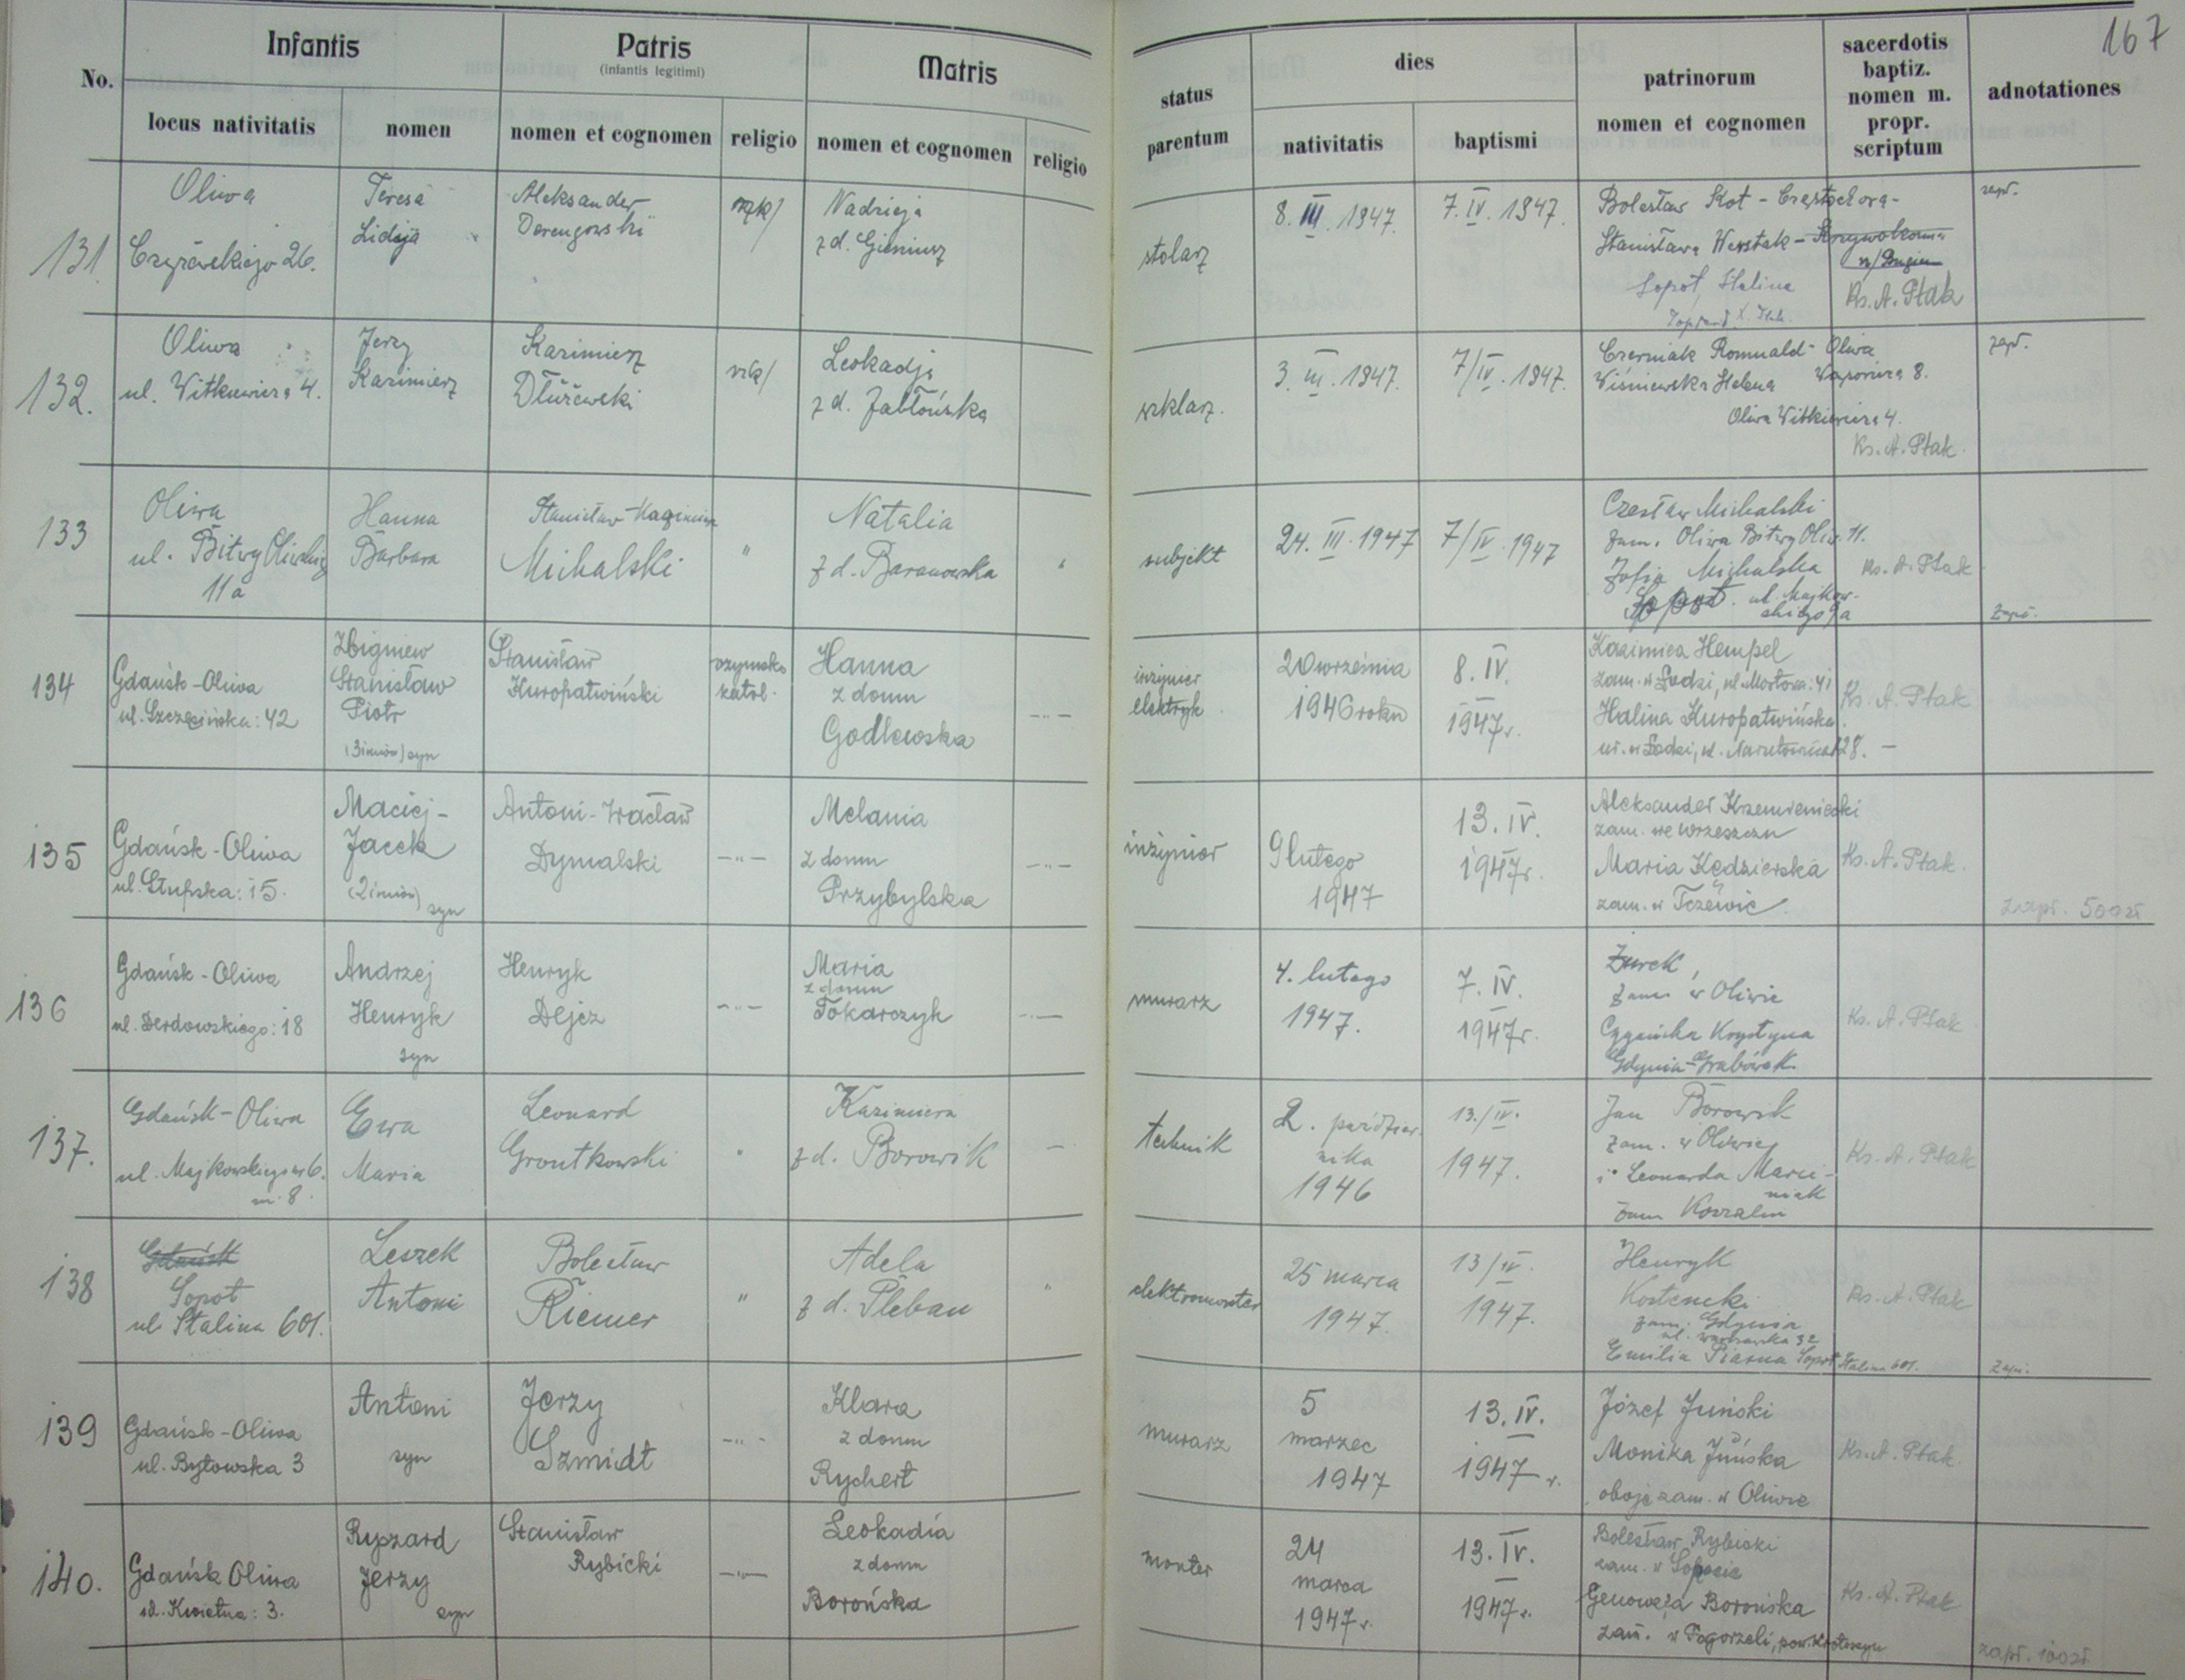 167
No.
Infantis
locus nativitatis
nomen
Patris
(infantis legitimi)
nomen et cognomen
religio
Matris
nomen et cognomen
religio
status
parentum
dies
nativitatis
baptismi
patrinorum
nomen et cognomen
sacerdotis
baptiz.
nomen m.
propr.
scriptum
adnotationes
131
Oliwa
26.
Teresa
Lidja
Aleksander
Nadzieja
z d. Gieniusz
stolarz
8. III. 1947.
7. IV. 1947.
Bolesław Kot - Częstochowa-
Stanisława
Sopot, Stalina
Ks. A. Ptak
zapł.
132.
Oliwa
ul. Witkiewicza 4.
Jerzy
Kazimierz
Kazimierz
Dłużewski
rzk/
Leokadja
z d. Jabłońska
szklarz.
3. III. 1947.
7/IV. 1947.
Czerniak Romuald - Oliwa
Wiśniewska Helena
8.
Oliwa Witkiewicza 4.
Ks. A. Ptak.
zapł.
133
Oliwa
ul. Bitwy Oliwskiej
11a
Hanna
Barbara
Stanisław Kazimierz
Michalski
"
Natalia
z d. Baranowska
"
subjekt
24. III. 1947
7/IV. 1947
Czesław Michalski
zam. Oliwa Bitwy Oliw. 11.
Zofja Michalska
Sopot. ul. Majkow-
skiego 9a
Ks. A. Ptak
134
Gdańsk-Oliwa
ul. Szczecińska: 42
Zbigniew
Stanisław
Piotr
(3 imion) syn
Stanisław
Kuropatwiński
rzymsko
katol.
Hanna
z domu
Godlewska
-"-
inżynier
elektryk
20 września
1946 roku
8. IV.
1947r.
Kazimiera Hempel
zam. w Łodzi, ul. Mostowa: 41
Halina Kuropatwińska
w Łodzi, ul. Narutowicza 128. -
Ks. A. Ptak
135
Gdańsk-Oliwa
ul. Słupska: 15.
Maciej-
Jacek
(2 imion)
syn
Antoni-Wacław
Dymalski
-"-
Melania
z domu
Przybylska
-"-
inżynier
9 lutego
1947
13. IV.
1947r.
Aleksander Krzemieniecki
zam. we Wrzeszczu
Maria Kędzierska
zam. w Tczewie
Ks. A. Ptak.
zapł. 500 zł
136
Gdańsk-Oliwa
ul. Derdowskiego: 18
Andrzej
Henryk
syn
Henryk
Dejcz
-"-
Maria
z domu
Tokarczyk
-"-
murarz
4. lutego
1947.
7. IV.
1947r.
Żurek,
zam. w Oliwie
Krystyna
Gdynia-Grabówek
Ks. A. Ptak
137.
Gdańsk-Oliwa
ul. Majkowskiego nr 6.
m. 8.
Ewa
Maria
Leonard
Groutkowski
"
Kazimiera
z d. Borowik
-
technik
2. paździer-
nika
1946
13./IV.
1947.
Jan Borowik
zam. w Oliwie
i Leonarda Marci-
niak
zam Koszalin
Ks. A. Ptak
138
Gdańsk
Sopot
ul Stalina 601.
Leszek
Antoni
Bolesław
Riemer
"
Adela
z d. Pleban
"
elektromonter
25 marca
1947.
13/IV.
1947.
Henryk
zam: Gdynia
ul. Warszawska 32
Emilia Piasna Sopot Stalina 601.
Ks. A. Ptak
139
Gdańsk-Oliwa
ul. Bytowska 3
Antoni
syn
Jerzy
Szmidt
-"-
Klara
z domu
Rychert
murarz
5
marzec
1947
13. IV.
1947 r.
Józef Juński
Monika Juńska
oboje zam. w Oliwie
Ks. A. Ptak.
140.
Gdańsk Oliwa
ul. Kwietna: 3.
Ryszard
Jerzy
syn
Stanisław
Rybicki
-"-
Leokadia
z domu
Borońska
monter
24
marca
1947 r.
13. IV.
1947 r.
Bolesław Rybicki
zam. w Sopocie
Genowefa Borońska
zam. w Pogorzeli, pow. Krotoszyn
Ks. A. Ptak
zapł. 100 zł